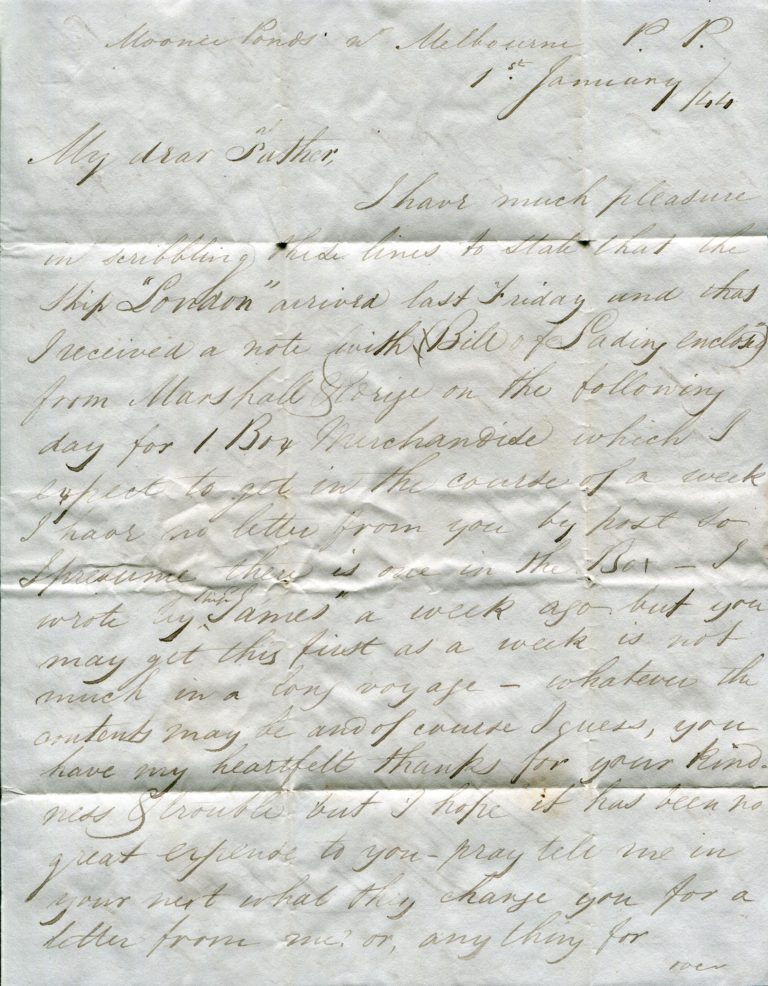 Moonee Ponds nr Melbourne P. P.
1st. January /44
My dear Father,
I have much pleasure
in scribbling these lines to state that the
Ship "London" arrived last Friday and that
I received a note with (Bill of Lading enclosed)
from Marshall & on the following
day for 1 Box Merchandise which I
expect to get in the course of a week
I have no letter from you by post so
I presume there is one in the Box - I
wrote by Ship "James" a week ago but you
may get this first as a week is not
much in a long voyage - whatever the
contents may be and of course I guess, you
have my heartfelt thanks for your kind-
ness & trouble but I hope it has been no
great expense to you - pray tell me in
your next what they charge you for a
letter from me. or, any thing for
over